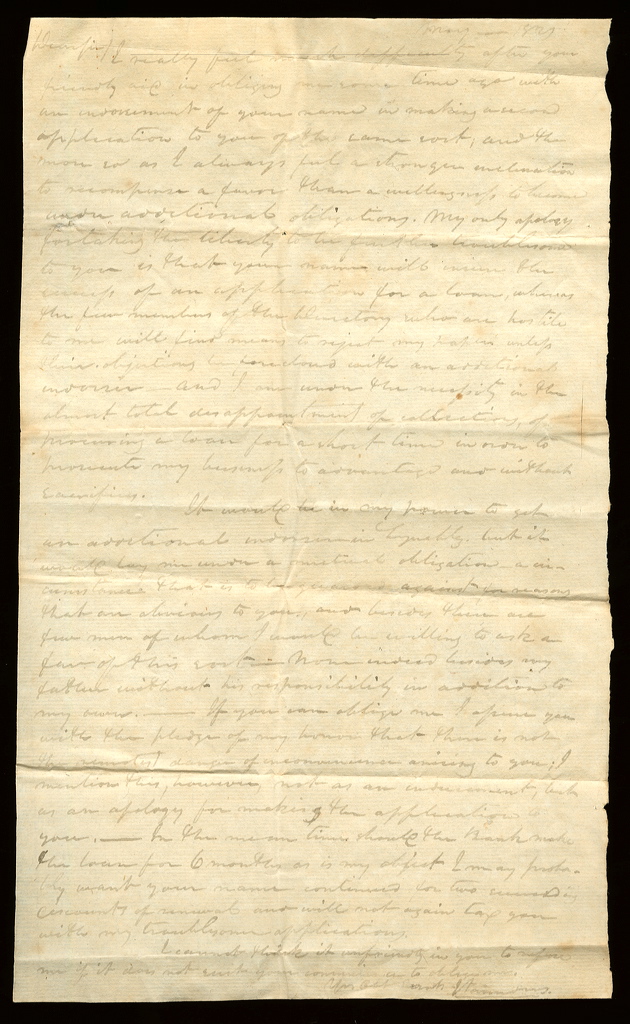 Dear Sir,
I really feel much difficulty after your
friendly aid in obliging me some time ago with
an indorsement of your name in making a second
application to you of the same sort, and the
more so as I always feel a stronger inclination
to recompense a favor than a willingness to become
under additional obligations. My only apology
for taking the liberty to be further troublesome
to you is that your name will insure the
success of an application for a loan, whereas
the few members of the Directory who are hostile
to me will find means to reject my paper unless
their obligations with an additional
indorser — and I am under the necessity in the
almost total disappointment of collections, of
procuring a loan for a short time in order to
prosecute my business to advantage and without
sacrifices.
It would be in my power to get
an additional indorser in but it
would lay me under a mutual obligation a cir-
cumstance that is to be guarded against for reasons
that are obvious to you, and besides there are
few men of whom I would be willing to ask a
favor of this sort — None indeed besides my
father without his responsibility in addition to
my own. — If you can oblige me I assure you
with the pledge of my honor that there is not
the remotest danger of inconvenience arising to you; I
mention this, however, not as an inducement, but
as an apology for making the application to
you. — In the mean time should the Bank make
the loan for 6 months as is my object I may proba-
bly want your name continued for two succeeding
discounts of renewal and will not again tax you
with my troublesome applications.
I cannot think it unfriendly in you to refuse
me if it does not suit your convenience to oblige me.
Yrs Obt